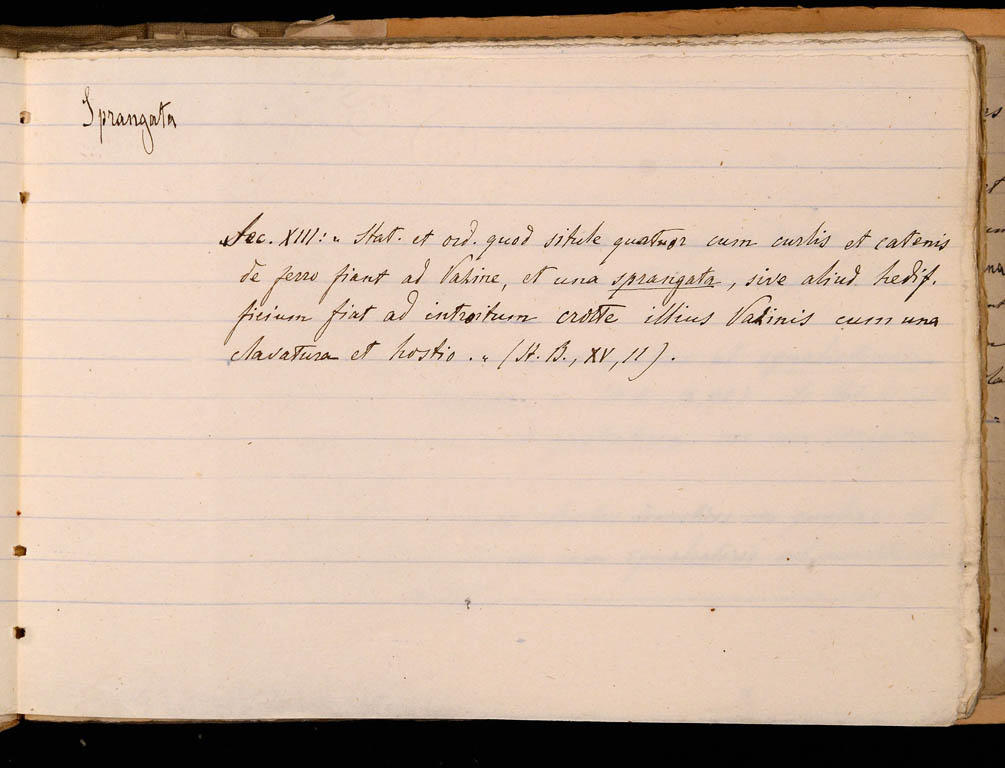 Sprangata
Sec. XIII: " Stat. et ord. quod situle quatuor cum curlis et catenis
de ferro fiant ad Vasine, et una sprangata, sive aliud hedif.
ficium fiat ad introitum crotte illius Vasinis cum una
clavatura et hostio. " (St. B., XV, 11).